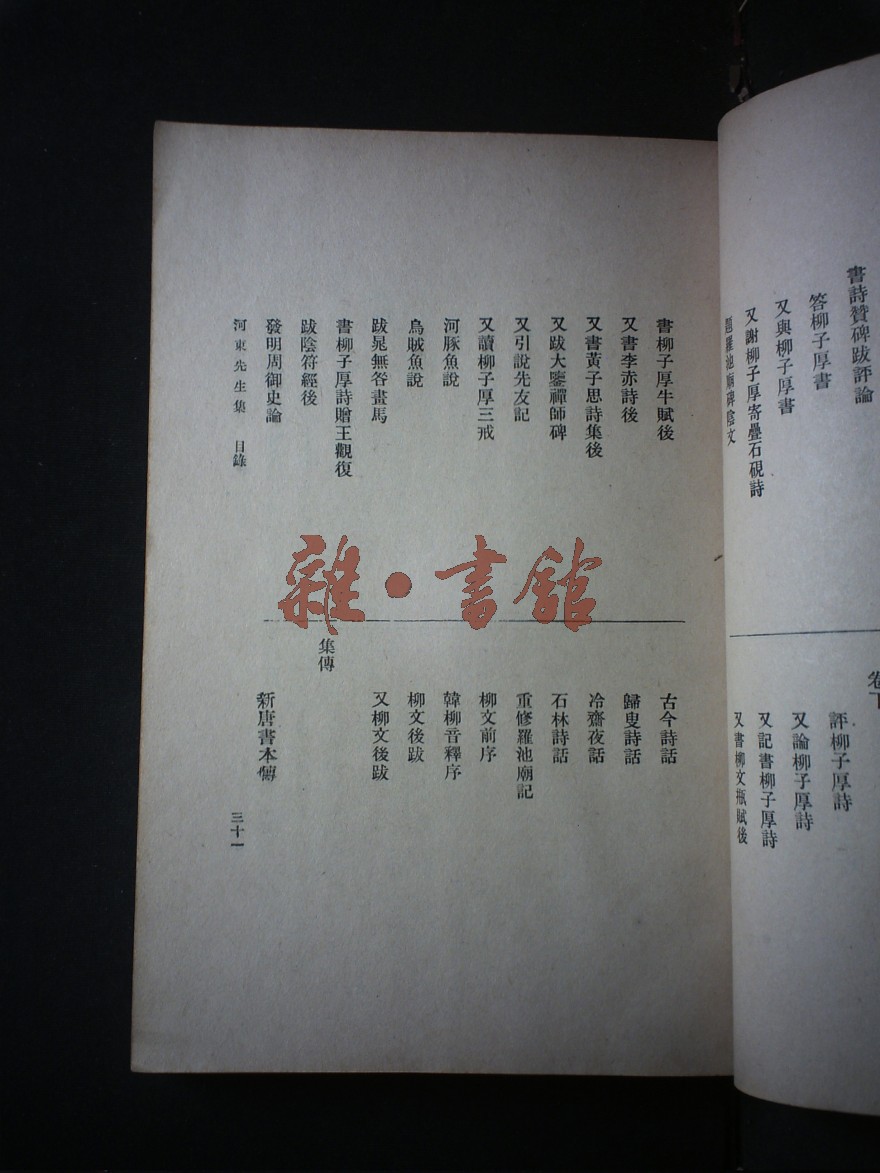 書詩贊碑跋評論
答柳子厚書
又與柳子厚書
又謝柳子厚寄疊石硯詩
題羅池廟碑陰文
卷下
評柳子厚詩
又論柳子厚詩
又記書柳子厚詩
又書柳文瓶賦後
書柳子厚牛賦後
又書李赤詩後
又書黃子思詩集後
又跋大鑒禪師碑
又引說先友記
又讀柳子厚三戒
河豚魚說
烏賊魚說
跋晁無咎畫馬
書柳子厚詩贈王觀復
跋陰符經後
發明周御史論
河東先生集 目錄
古今詩話
歸叟詩話
冷齋夜話
石林詩話
重修羅池廟記
柳文前序
韓柳音釋序
柳文後跋
又柳文後跋
集傳
新唐書本傳
三十一
雜·書館